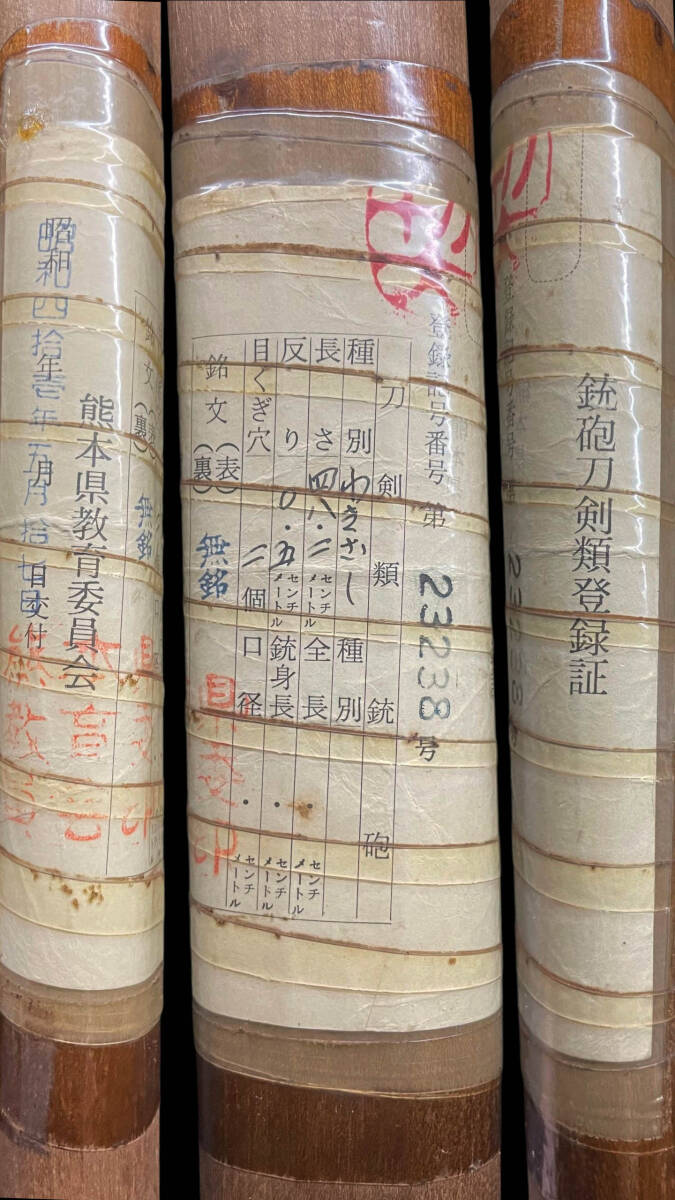 銃砲刀剣類登録証
登録記号番号 第 23238 号
刀剣類 銃砲
種別 わきざし 種別
長さ 四八・二 センチメートル 全長 ・ センチメートル
反り 〇・五 センチメートル 銃身長 ・ センチメートル
目くぎ穴 二個 口径 ・ センチメートル
銘文 (表) (裏) 無銘
昭和四拾壱年五月拾七日交付
熊本県教育委員会